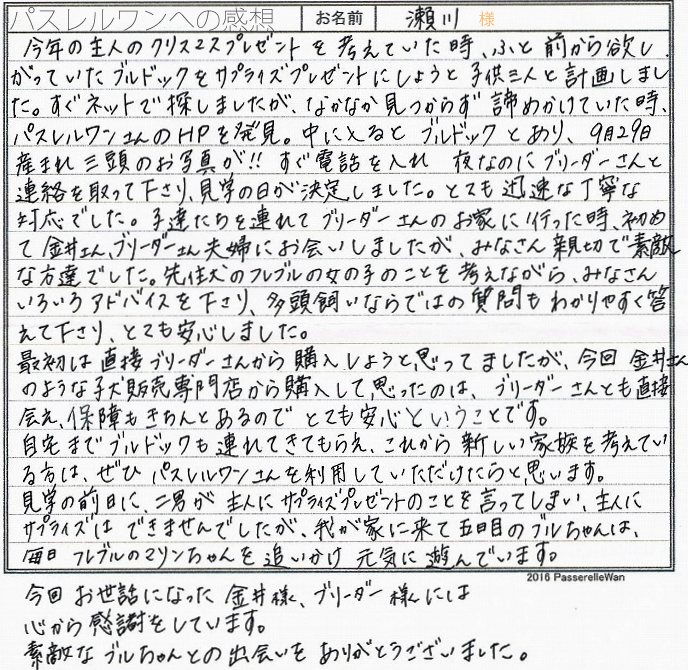 パスレルワンへの感想 お名前 瀬川 様
今年の主人のクリスマスプレゼントを考えていた時、ふと前から欲し
がっていたブルドックをサプライズプレゼントにしようと子供三人と計画しまし
た。すぐネットで探しましたが、なかなか見つからず諦めかけていた時、
パスレルワンさんのHPを発見。中に入るとブルドックとあり、9月29日
産まれ三頭のお写真が!!すぐ電話を入れ 夜なのにブリーダーさんと
連絡を取って下さり、見学の日が決定しました。とても迅速な丁寧な
対応でした。子達たちを連れてブリーダーさんのお家に行った時、初め
て金井さん、ブリーダーさん夫婦にお会いしましたが、みなさん親切で素敵
な方達でした。先住犬のフレブルの女の子のことを考えながら、みなさん
いろいろアドバイスを下さり、多頭飼いならではの質問もわかりやすく答
えて下さり、とても安心しました。
最初は直接ブリーダーさんから購入しようと思ってましたが、今回金井さん
のような子犬販売専門店から購入して思ったのは、ブリーダーさんとも直接
会え、保障もきちんとあるのでとても安心ということです。
自宅までブルドックも連れてきてもらえ、これから新しい家族を考えてい
る方は、ぜひパスレルワンさんを利用していただけたらと思います。
見学の前日に、二男が主人にサプライズプレゼントのことを言ってしまい、主人に
サプライズはできませんでしたが、我が家に来て五日目のブルちゃんは、
毎日フレブルのマリンちゃんを追いかけ元気に遊んでいます。
2016 PasserelleWan
今回お世話になった金井様、ブリーダー様には
心から感謝をしています。
素敵なブルちゃんとの出会いをありがとうございました。